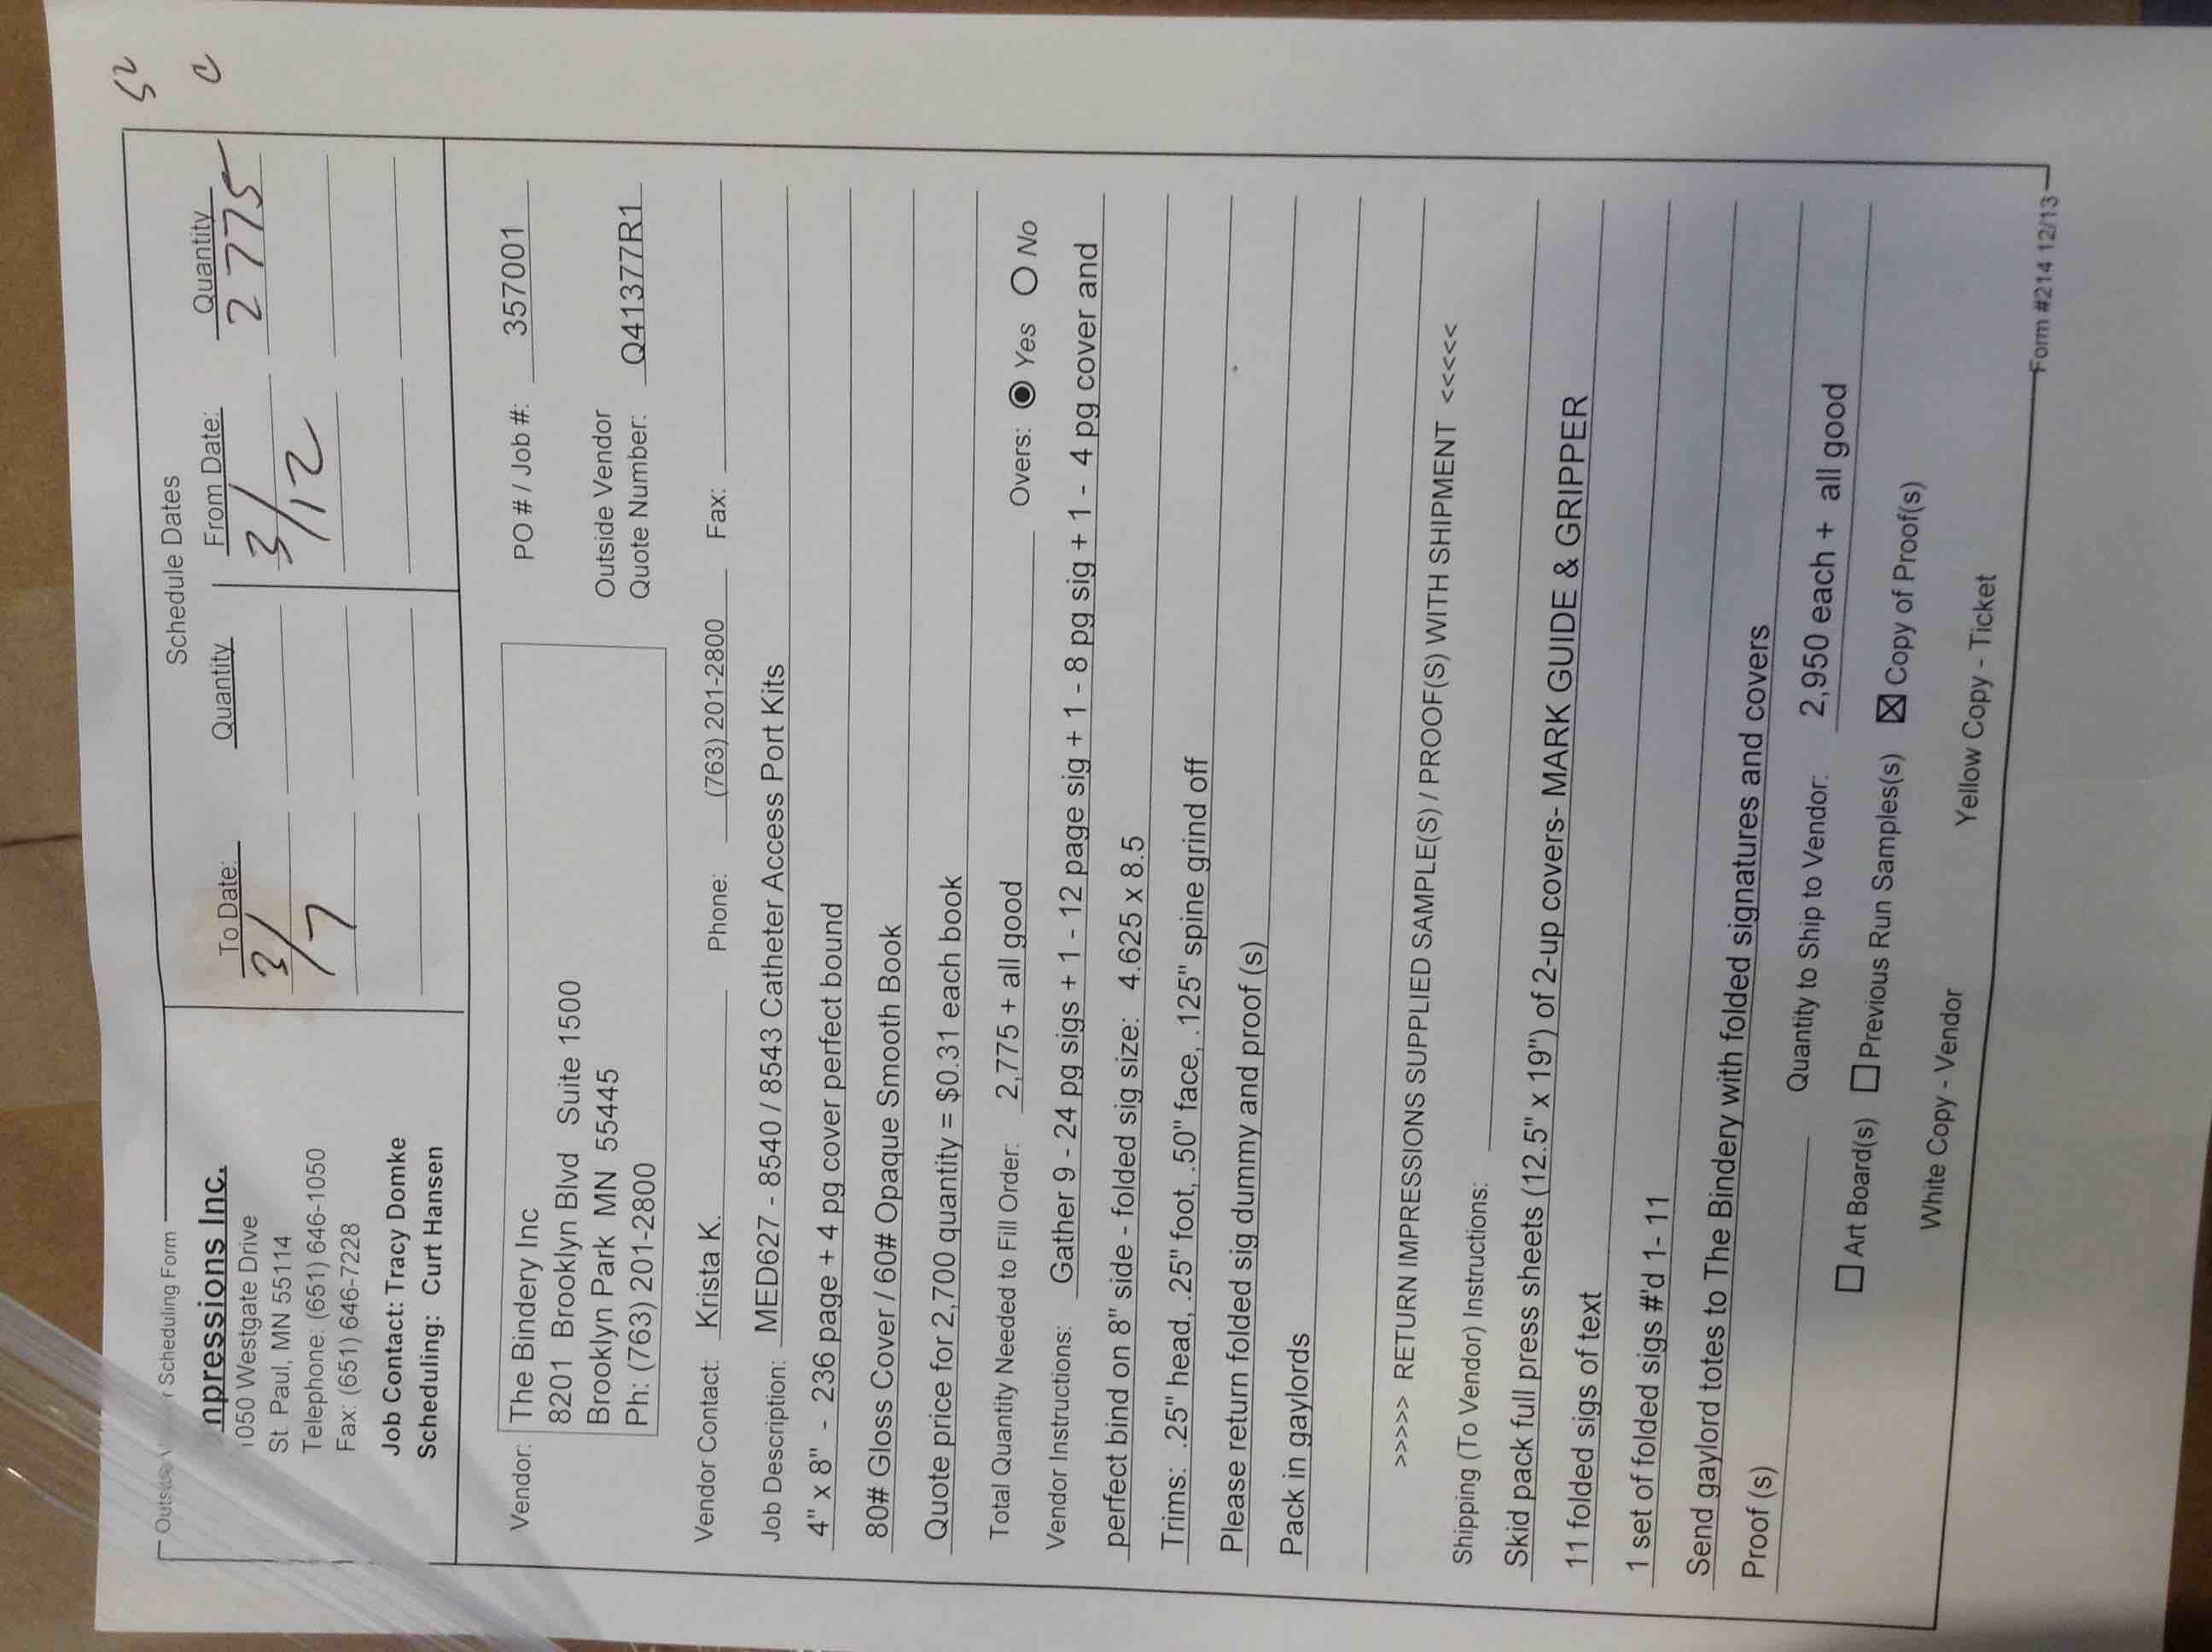 Scheduling Form
Schedule Dates
To Date: Quantity From Date: Quantity
3/7 3/12 2775
npressions Inc.
1050 Westgate Drive
St. Paul, MN 55114
Telephone: (651) 646-1050
Fax: (651) 646-7228
Job Contact: Tracy Domke
Scheduling: Curt Hansen
Vendor: The Bindery Inc
8201 Brooklyn Blvd Suite 1500
Brooklyn Park MN 55445
Ph: (763) 201-2800
PO # / Job #: 357001
Outside Vendor
Quote Number: Q41377R1
Vendor Contact: Krista K. Phone: (763) 201-2800 Fax:
Job Description: MED627 - 8540 / 8543 Catheter Access Port Kits
4" x 8" - 236 page + 4 pg cover perfect bound
80# Gloss Cover / 60# Opaque Smooth Book
Quote price for 2,700 quantity = $0.31 each book
Total Quantity Needed to Fill Order: 2,775 + all good Overs: Yes No
Vendor Instructions: Gather 9 - 24 pg sigs + 1 - 12 page sig + 1 - 8 pg sig + 1 - 4 pg cover and
perfect bind on 8" side - folded sig size: 4.625 x 8.5
Trims: .25" head, .25" foot, .50" face, .125" spine grind off
Please return folded sig dummy and proof (s)
Pack in gaylords
>>>>> RETURN IMPRESSIONS SUPPLIED SAMPLE(S) / PROOF(S) WITH SHIPMENT <<<<<
Shipping (To Vendor) Instructions:
Skid pack full press sheets (12.5" x 19") of 2-up covers- MARK GUIDE & GRIPPER
11 folded sigs of text
1 set of folded sigs #'d 1- 11
Send gaylord totes to The Bindery with folded signatures and covers
Proof (s)
Quantity to Ship to Vendor: 2,950 each + all good
Art Board(s) Previous Run Samples(s) Copy of Proof(s)
White Copy - Vendor Yellow Copy - Ticket
Form #214 12/13